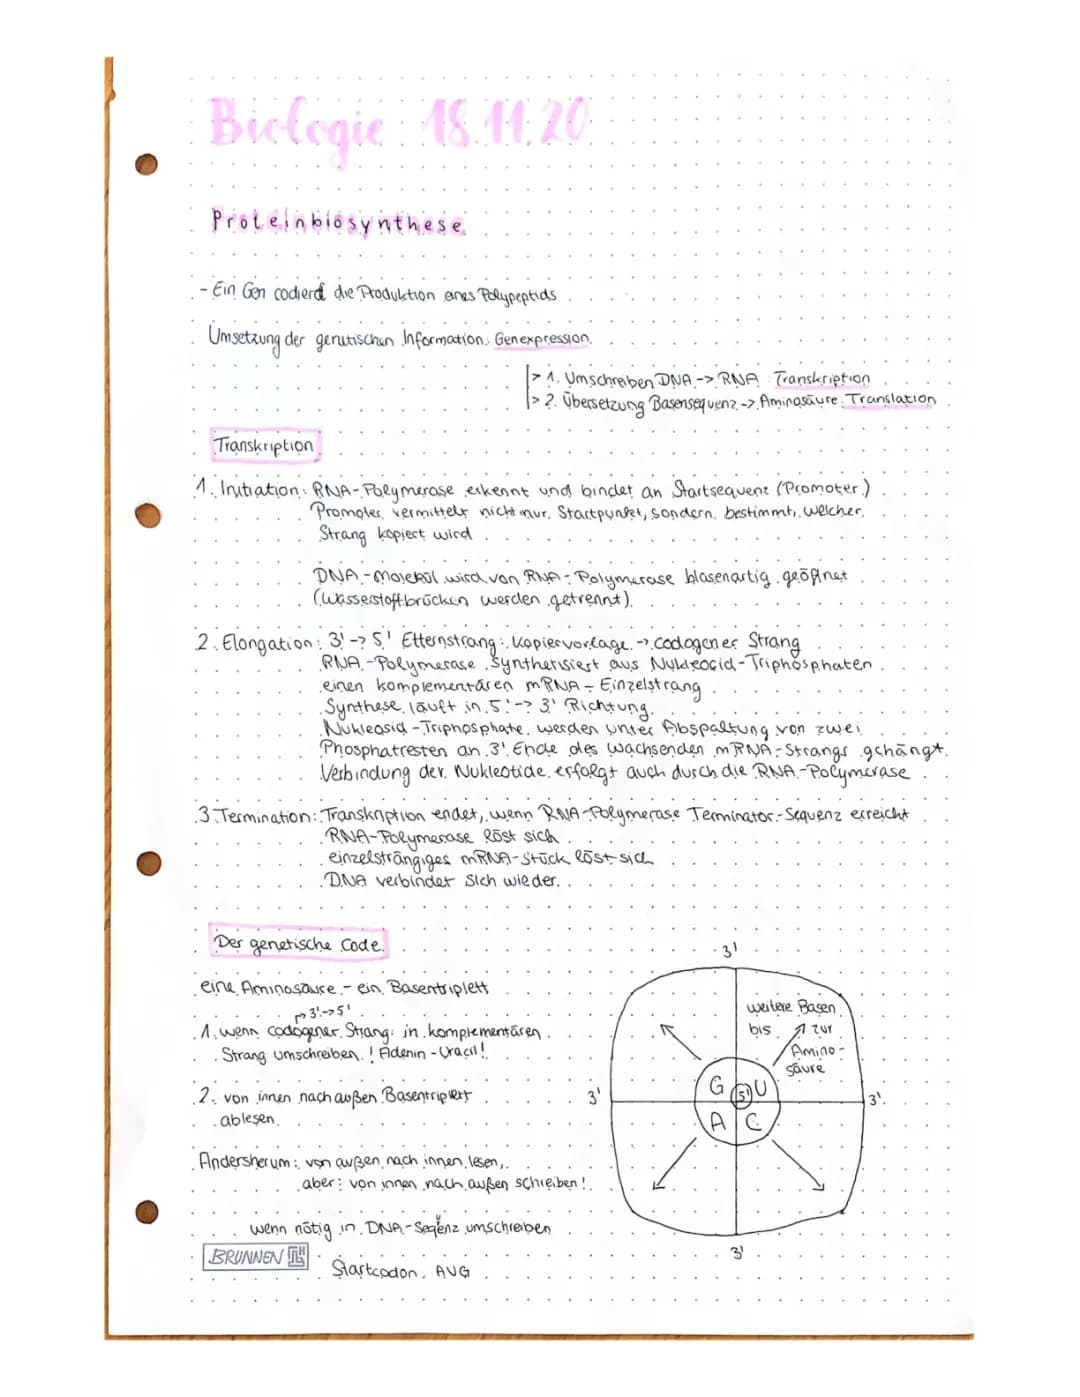 Biologie 18.11.20
Proteinbiosynthese
- Ein Gen codierd die Produktion eines Polypeptids
Umsetzung der genetischen Information: Genexpression
> 1. Umschreiben DNA -> RNA Transkription
> 2. Übersetzung Basensequenz -> Aminosäure Translation
Transkription
1. Initiation: RNA-Polymerase erkennt und bindet an Startsequenz (Promoter)
Promoter vermittelt nicht nur Startpunkt, sondern bestimmt, welcher
Strang kopiert wird
DNA-Molekül wird von RNA-Polymerase blasenartig geöffnet
(Wasserstoffbrücken werden getrennt)
2. Elongation: 3' -> 5' Elternstrang: Kopiervorlage -> codogener Strang
RNA-Polymerase synthetisiert aus Nukleosid-Triphosphaten
einen komplementären mRNA-Einzelstrang
Synthese läuft in 5' -> 3' Richtung
Nukleosid-Triphosphate werden unter Abspaltung von zwei
Phosphatresten an 3' Ende des wachsenden mRNA-Strangs gehängt
Verbindung der Nukleotide erfolgt auch durch die RNA-Polymerase
3. Termination: Transkription endet, wenn RNA-Polymerase Terminator-Sequenz erreicht
RNA-Polymerase löst sich
einzelsträngiges mRNA-Stück löst sich
DNA verbindet sich wieder
Der genetische Code
eine Aminosäure - ein Basentriplett
3' -> 5'
1. wenn codogener Strang: in komplementären
Strang umschreiben ! Adenin - Uracil!
2. von innen nach außen Basentriplett
ablesen
Andersherum: von außen nach innen lesen,
aber: von innen nach außen schreiben!
wenn nötig in DNA-Seqenz umschreiben
u
BRUNNEN
Startcodon: AUG
3'
weitere Basen
bis zur
Amino-
säure
G U
5'
3' 3'
A C
3'